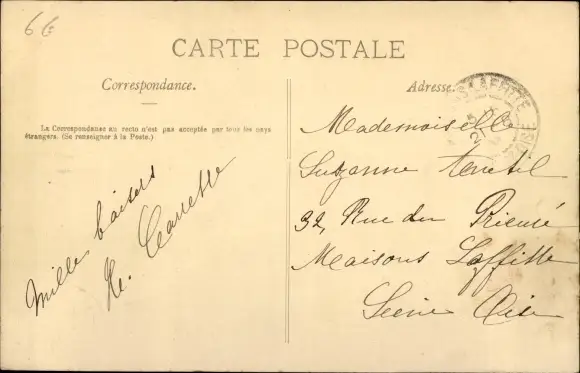 6 €
CARTE POSTALE
Correspondance.
Adresse.
La Correspondance au recto n'est pas acceptée par tous les pays
étrangers. (Se renseigner à la Poste.)
Mille baisers
Mademoiselle
Suzanne
32, Rue du Prieuré
Maisons Laffitte
Seine Oise
LAFFITTE